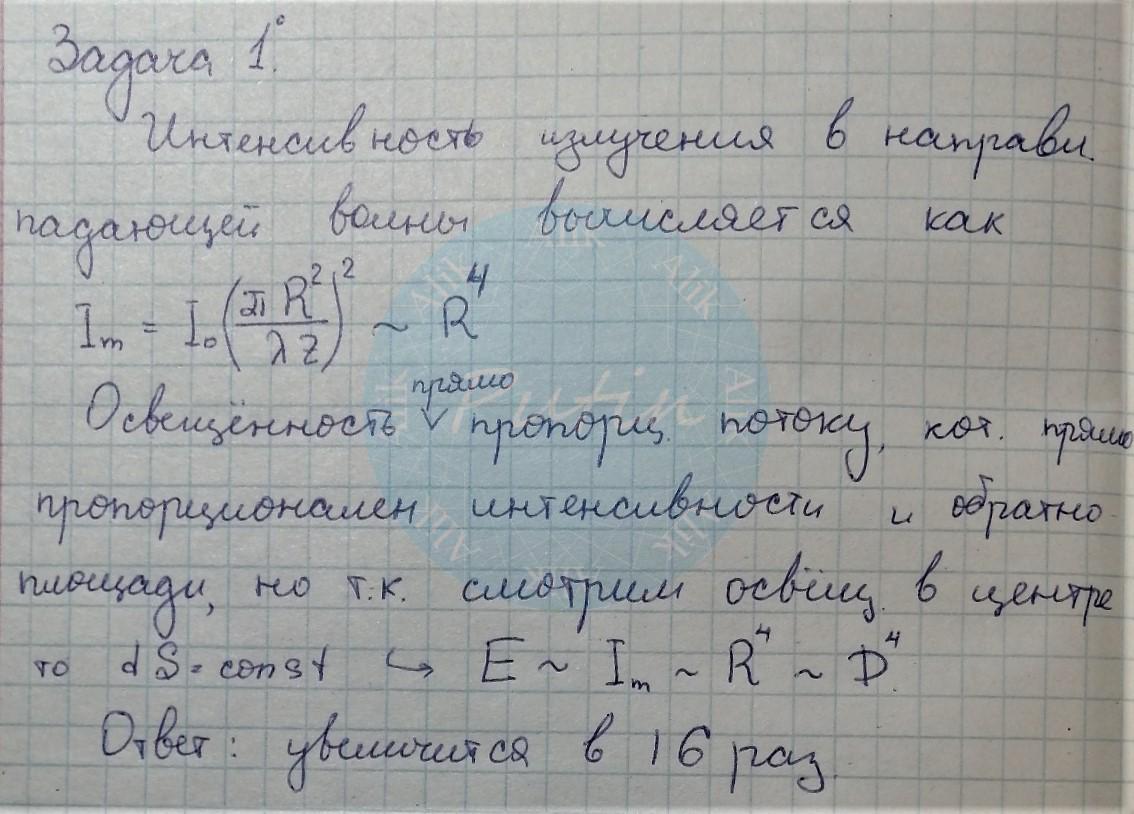 Задача 1°.
Интенсивность излучения в направл.
падающей волны вычисляется как
I_m = I_0 (πR²/λz)² ~ R⁴
прямо
Освещённость ∨ пропорц. потоку, кот. прямо
пропорционален интенсивности и обратно
площади, но т.к. смотрим освещ. в центре
то dS = const ↪ E ~ I_m ~ R⁴ ~ D⁴.
Ответ: увеличится в 16 раз.
Alik
Alik
Alik
Alik
Alik
Putin
Alik
Alik
Alik